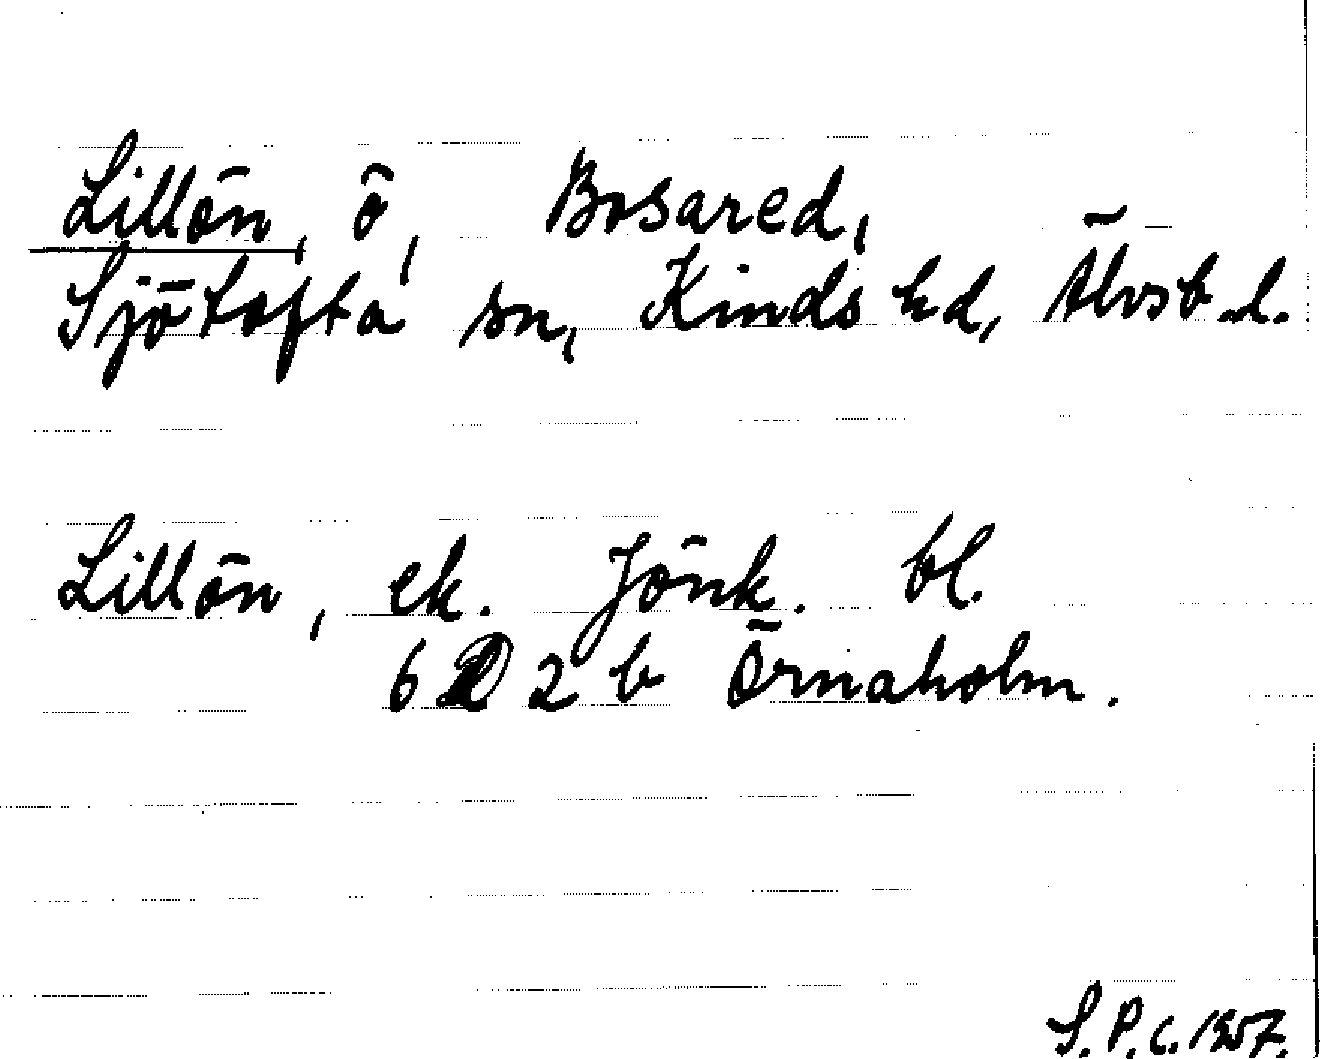 Lillön, ö, Bosared,
Sjötofta sn, Kinds hd, Älvsb. l.
Lillön, ek. Jönk. bl.
6 2 b Örnaholm.
S.P.C. 1957.